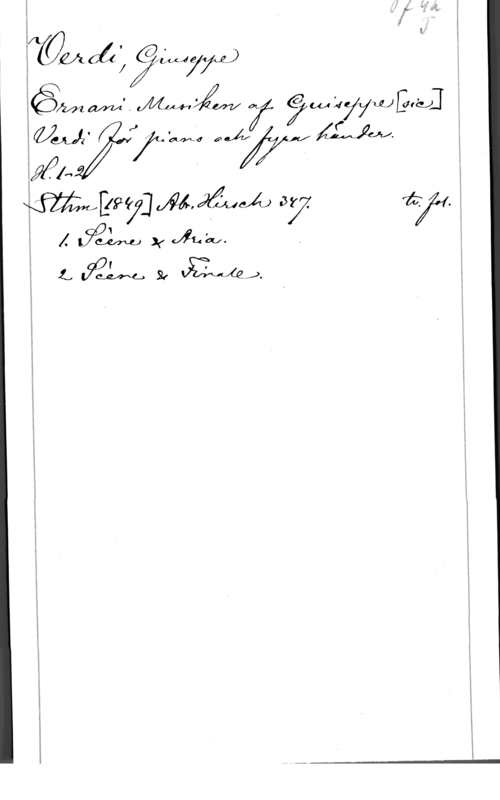 Verdi, Giuseppe
Ernani. Musiken af Guiseppe [sic]
Verdi för piano och fyra händer.
H. 1-2
Sthm [1849] Ab. Hirsch 347. tv. fol.
1. Scène & Aria.
2. Scène & Finale.